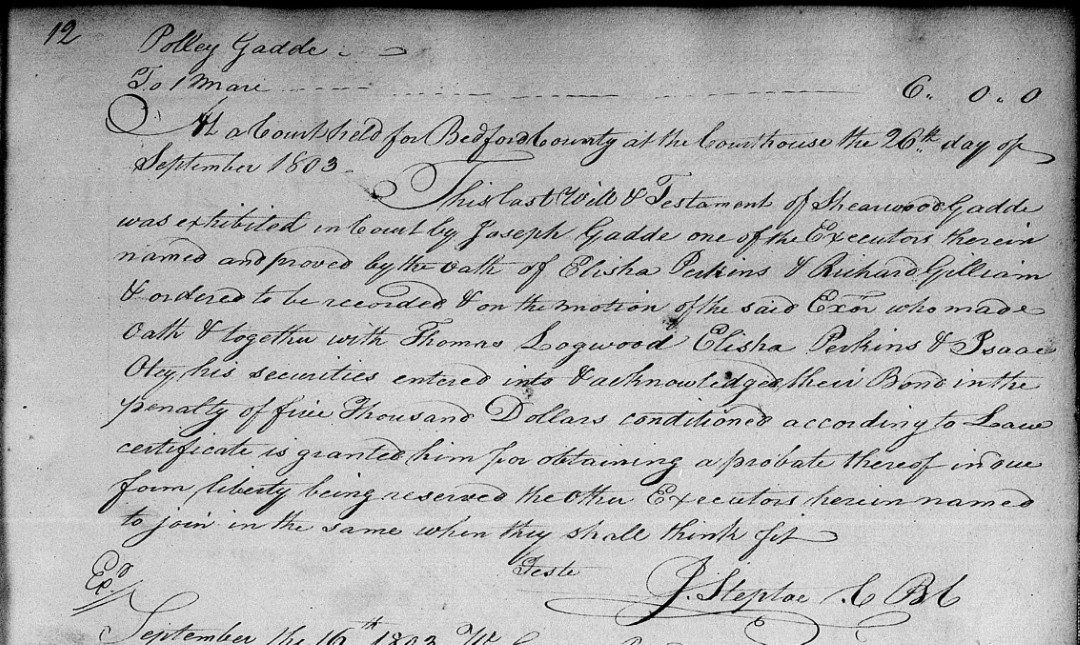 12
Polley Gadde
To 1 Mare 6.. 0.. 0
At a Court held for Bedford County at the Courthouse the 26th day of
September 1803.
This last Will & Testament of Shearwood Gadde
was exhibited in Court by Joseph Gadde one of the Executors therein
named and proved by the oath of Elisha Perkins & Richard Gilliam
& ordered to be recorded & on the motion of the said Exor who made
Oath & together with Thomas Logwood Elisha Perkins & Isaac
Otey his securities entered into & acknowledged their Bond in the
penalty of five Thousand Dollars conditioned according to Law
certificate is granted him for obtaining a probate thereof in due
form liberty being reserved the other Executors herein named
to join in the same when they shall think fit
Teste
J. Steptoe C B C
Exd
September the 16th 1803